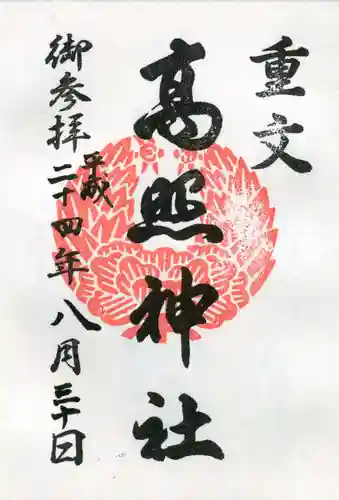 重文
高照神社
御参拝
平成
二十四年 八月三十日